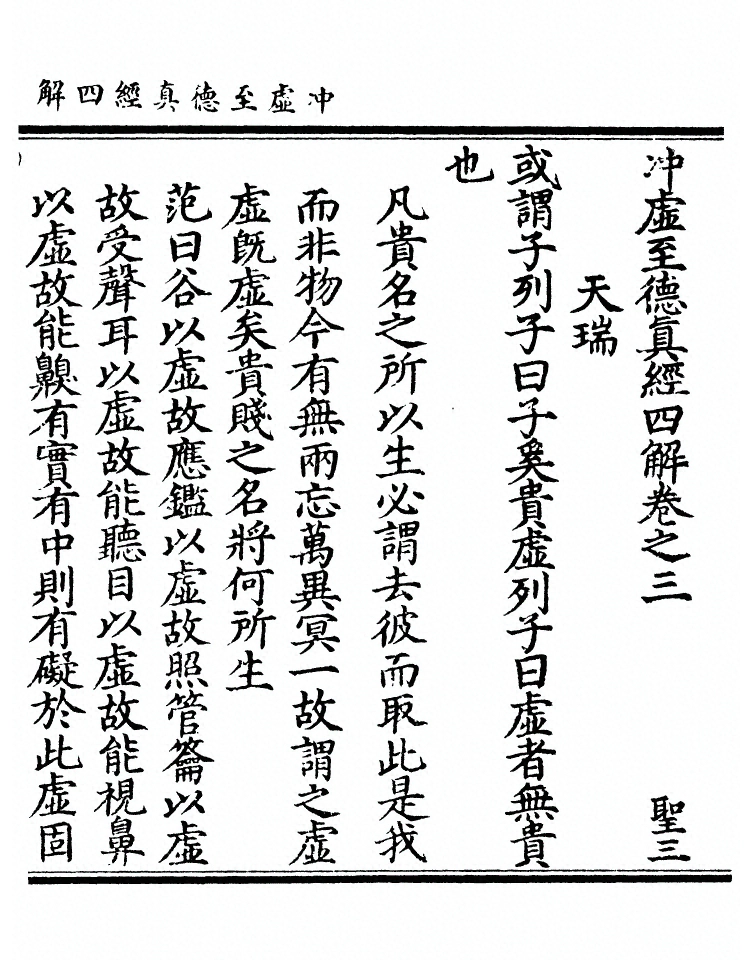 冲虛至德真經四解
冲虛至德真經四解卷之三　聖三
天瑞
或謂子列子曰子奚貴虛列子曰虛者無貴
也
凡貴名之所以生必謂去彼而取此是我
而非物今有無兩忘萬異冥一故謂之虛
虛旣虛矣貴賤之名將何所生
范曰谷以虛故應鑑以虛故照管籥以虛
故受聲耳以虛故能聽目以虛故能視鼻
以虛故能齅有實有中則有礙於此虛固